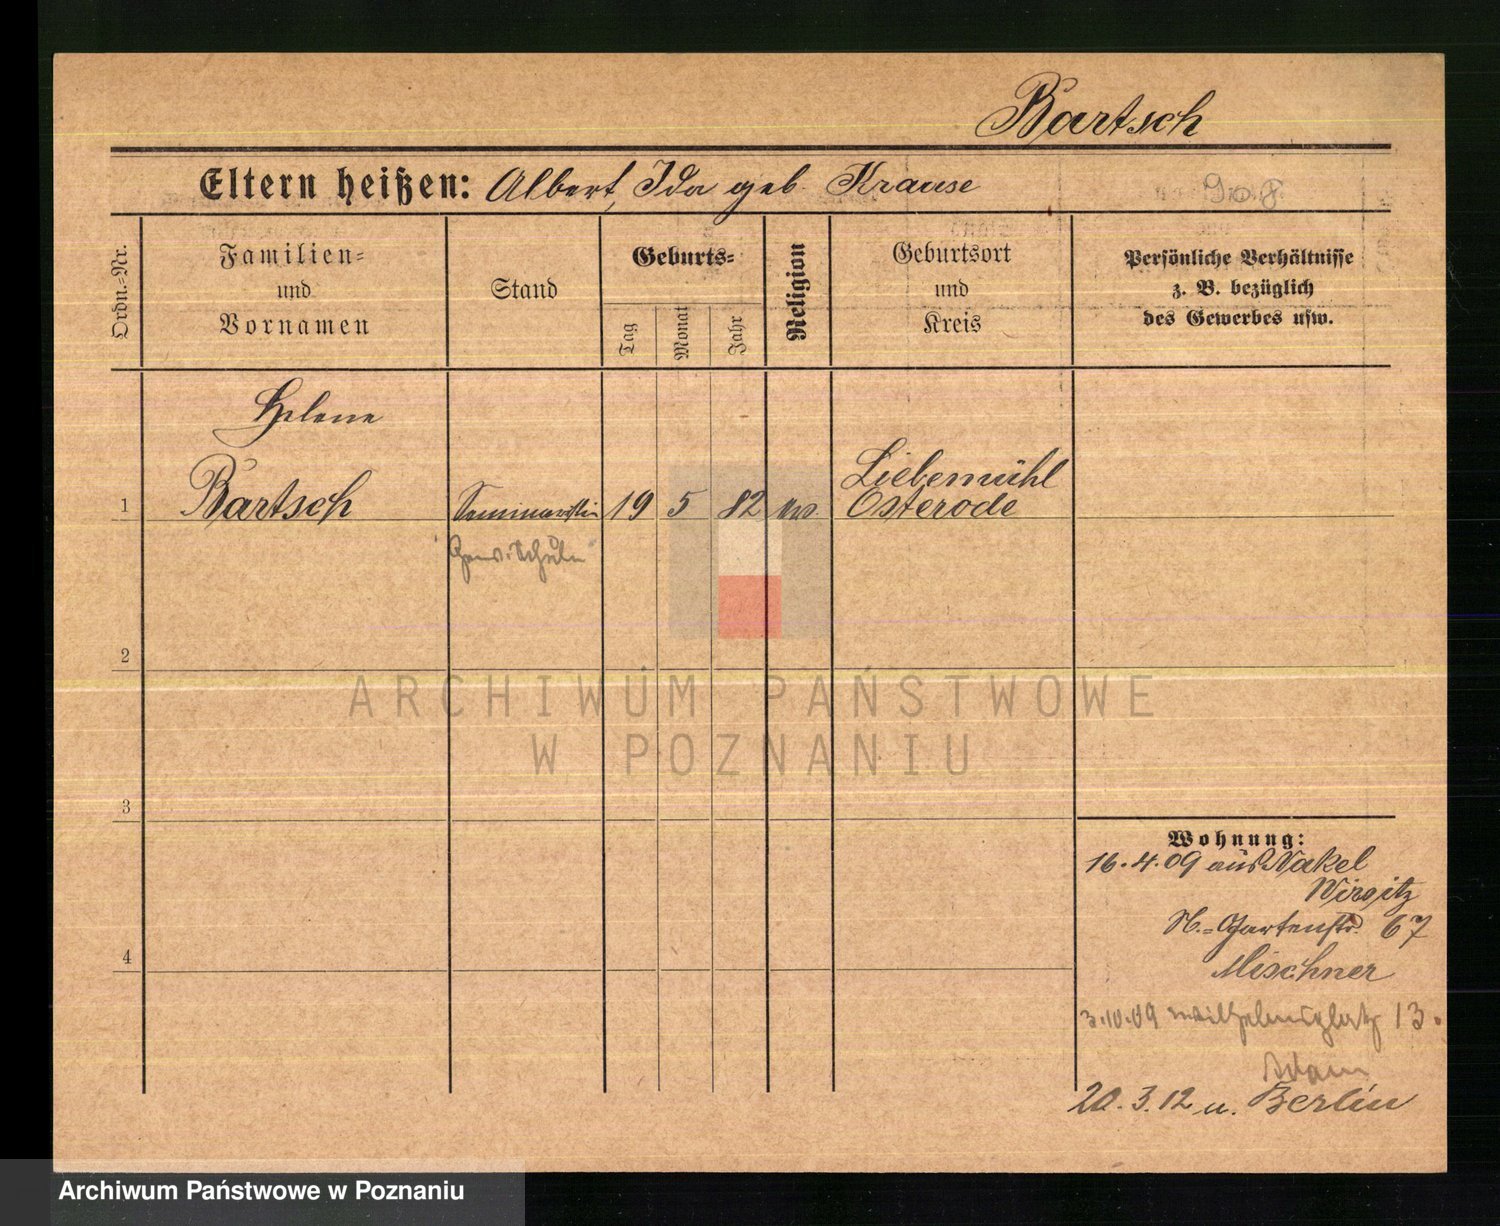 Bartsch
Eltern heißen: Albert, Ida geb. Krause
Ordn.-Nr.
Familien-
und
Vornamen
Stand
Geburts-
Tag
Monat
Jahr
Religion
Geburtsort
und
Kreis
Persönliche Verhältnisse
z. B. bezüglich
des Gewerbes usw.
Helene
1 Bartsch Seminaristin 19 5 82 ev. Liebemühl
Osterode
Gew. Schule
2
3
4
Wohnung:
16.4.09 aus Nakel
Wirsitz
N.-Gartenstr. 67
Mischner
3.10.09 Wilhelmsplatz 13.
Adam
20.3.12 n. Berlin
ARCHIWUM PAŃSTWOWE
W POZNANIU
Archiwum Państwowe w Poznaniu